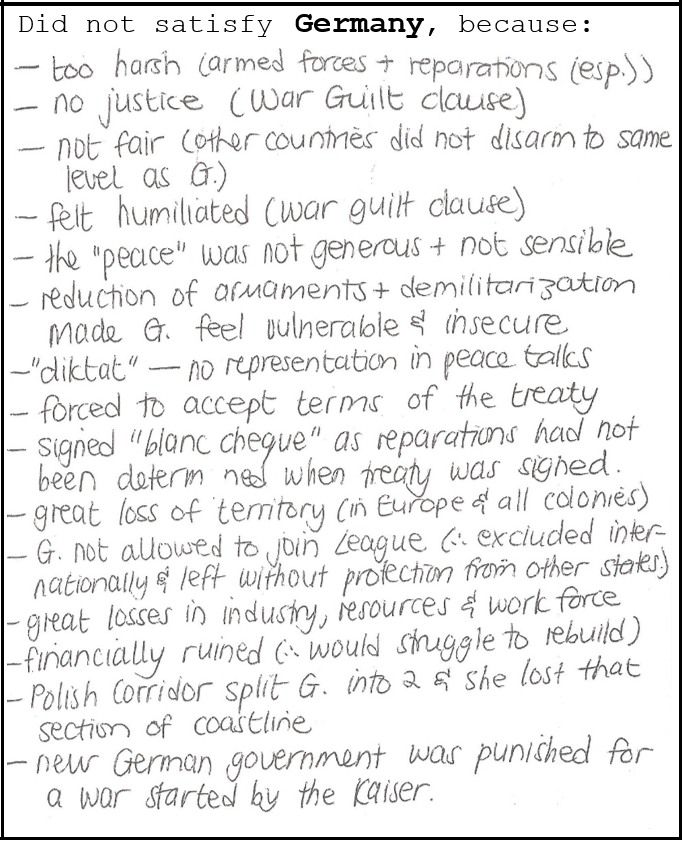 Did not satisfy Germany, because:
— too harsh (armed forces + reparations (esp.))
— no justice (War Guilt clause)
— not fair (other countries did not disarm to same
level as G.)
— felt humiliated (war guilt clause)
— the "peace" was not generous + not sensible
— reduction of armaments + demilitarization
made G. feel vulnerable & insecure
— "diktat" — no representation in peace talks
— forced to accept terms of the treaty
— signed "blanc cheque" as reparations had not
been determ ned when treaty was signed.
— great loss of territory (in Europe & all colonies)
— G. not allowed to join League (∴ excluded inter-
nationally & left without protection from other states)
— great losses in industry, resources & work force
— financially ruined (∴ would struggle to rebuild)
— Polish Corridor split G. into 2 & she lost that
section of coastline
— new German government was punished for
a war started by the Kaiser.